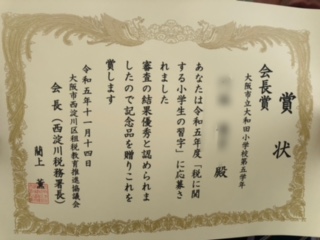 賞状
会長賞
大阪市立大和田小学校第五学年
殿
あなたは令和五年度「税に関
する小学生の習字」に応募さ
れました
審査の結果優秀と認められま
したので記念品を贈りこれを
賞します
令和五年十一月十四日
大阪市西淀川区租税教育推進協議会
会長（西淀川税務署長）
蘭上 薫